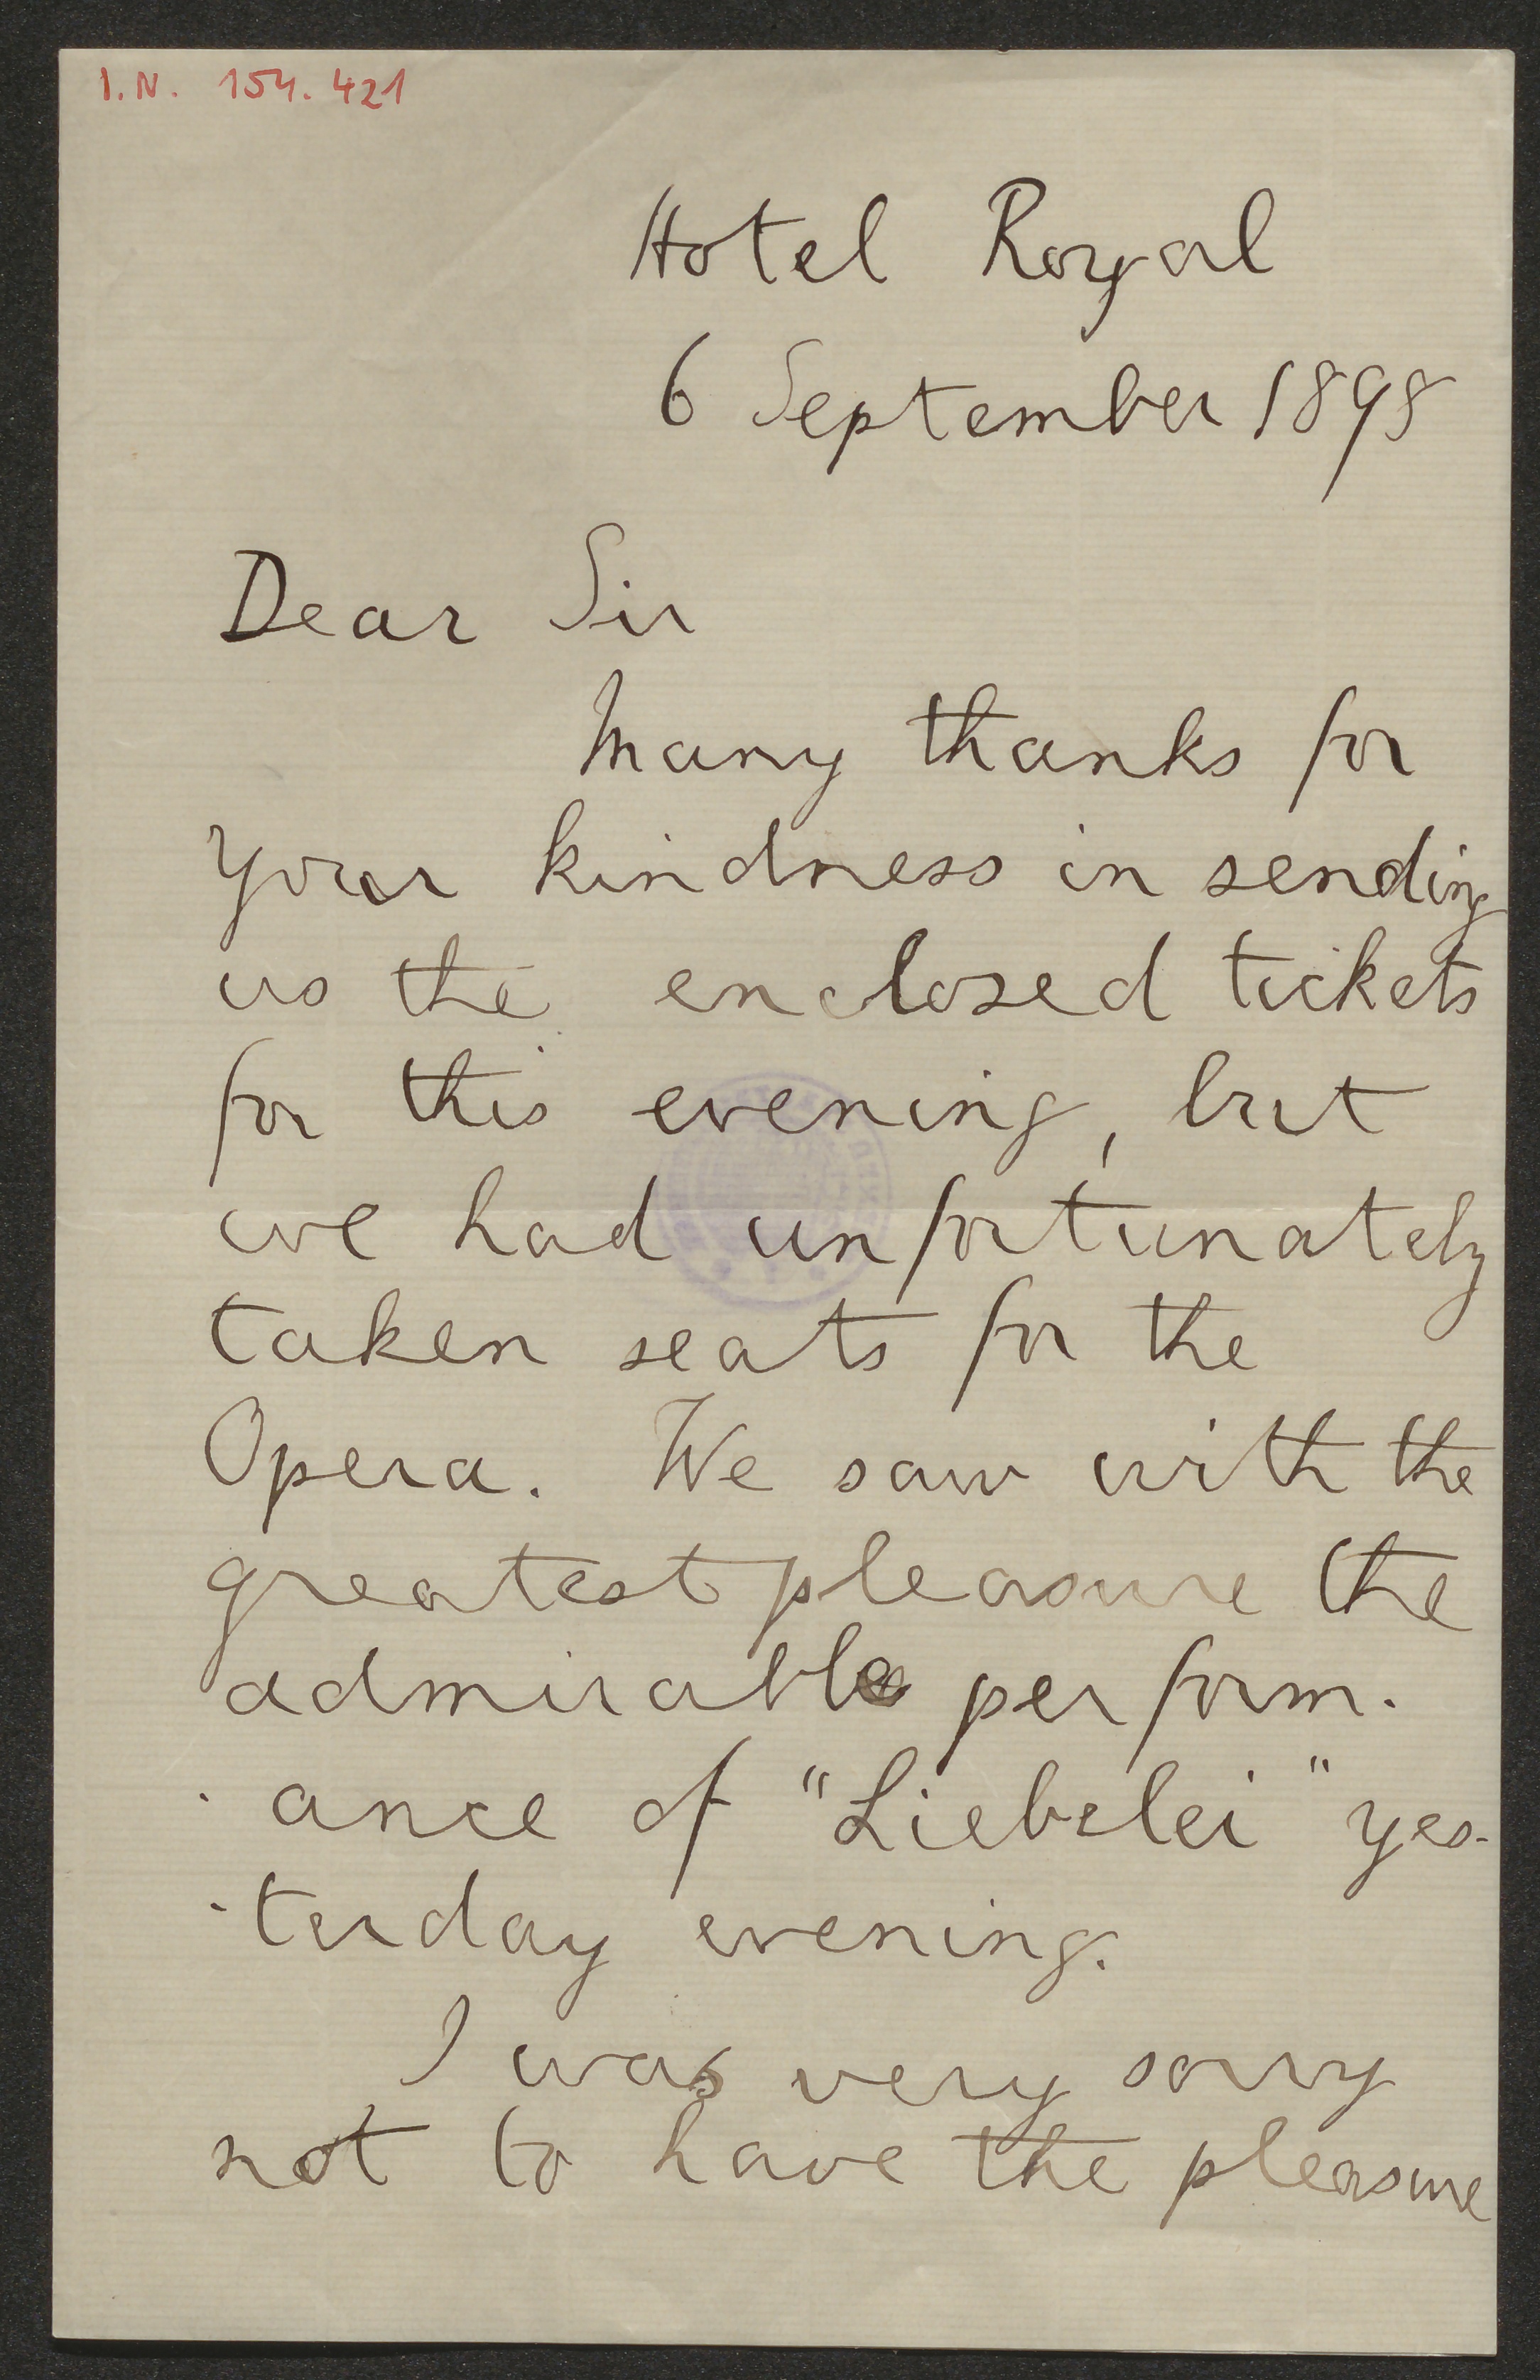 I.N. 154.421
Hotel Royal
6 September 1898
Dear Sir
Many thanks for
your kindness in sending
us the enclosed tickets
for this evening, but
we had unfortunately
taken seats for the
Opera. We saw with the
greatest pleasure the
admirable perform-
-ance of "Liebelei" yes-
-terday evening.
I was very sorry
not to have the pleasure